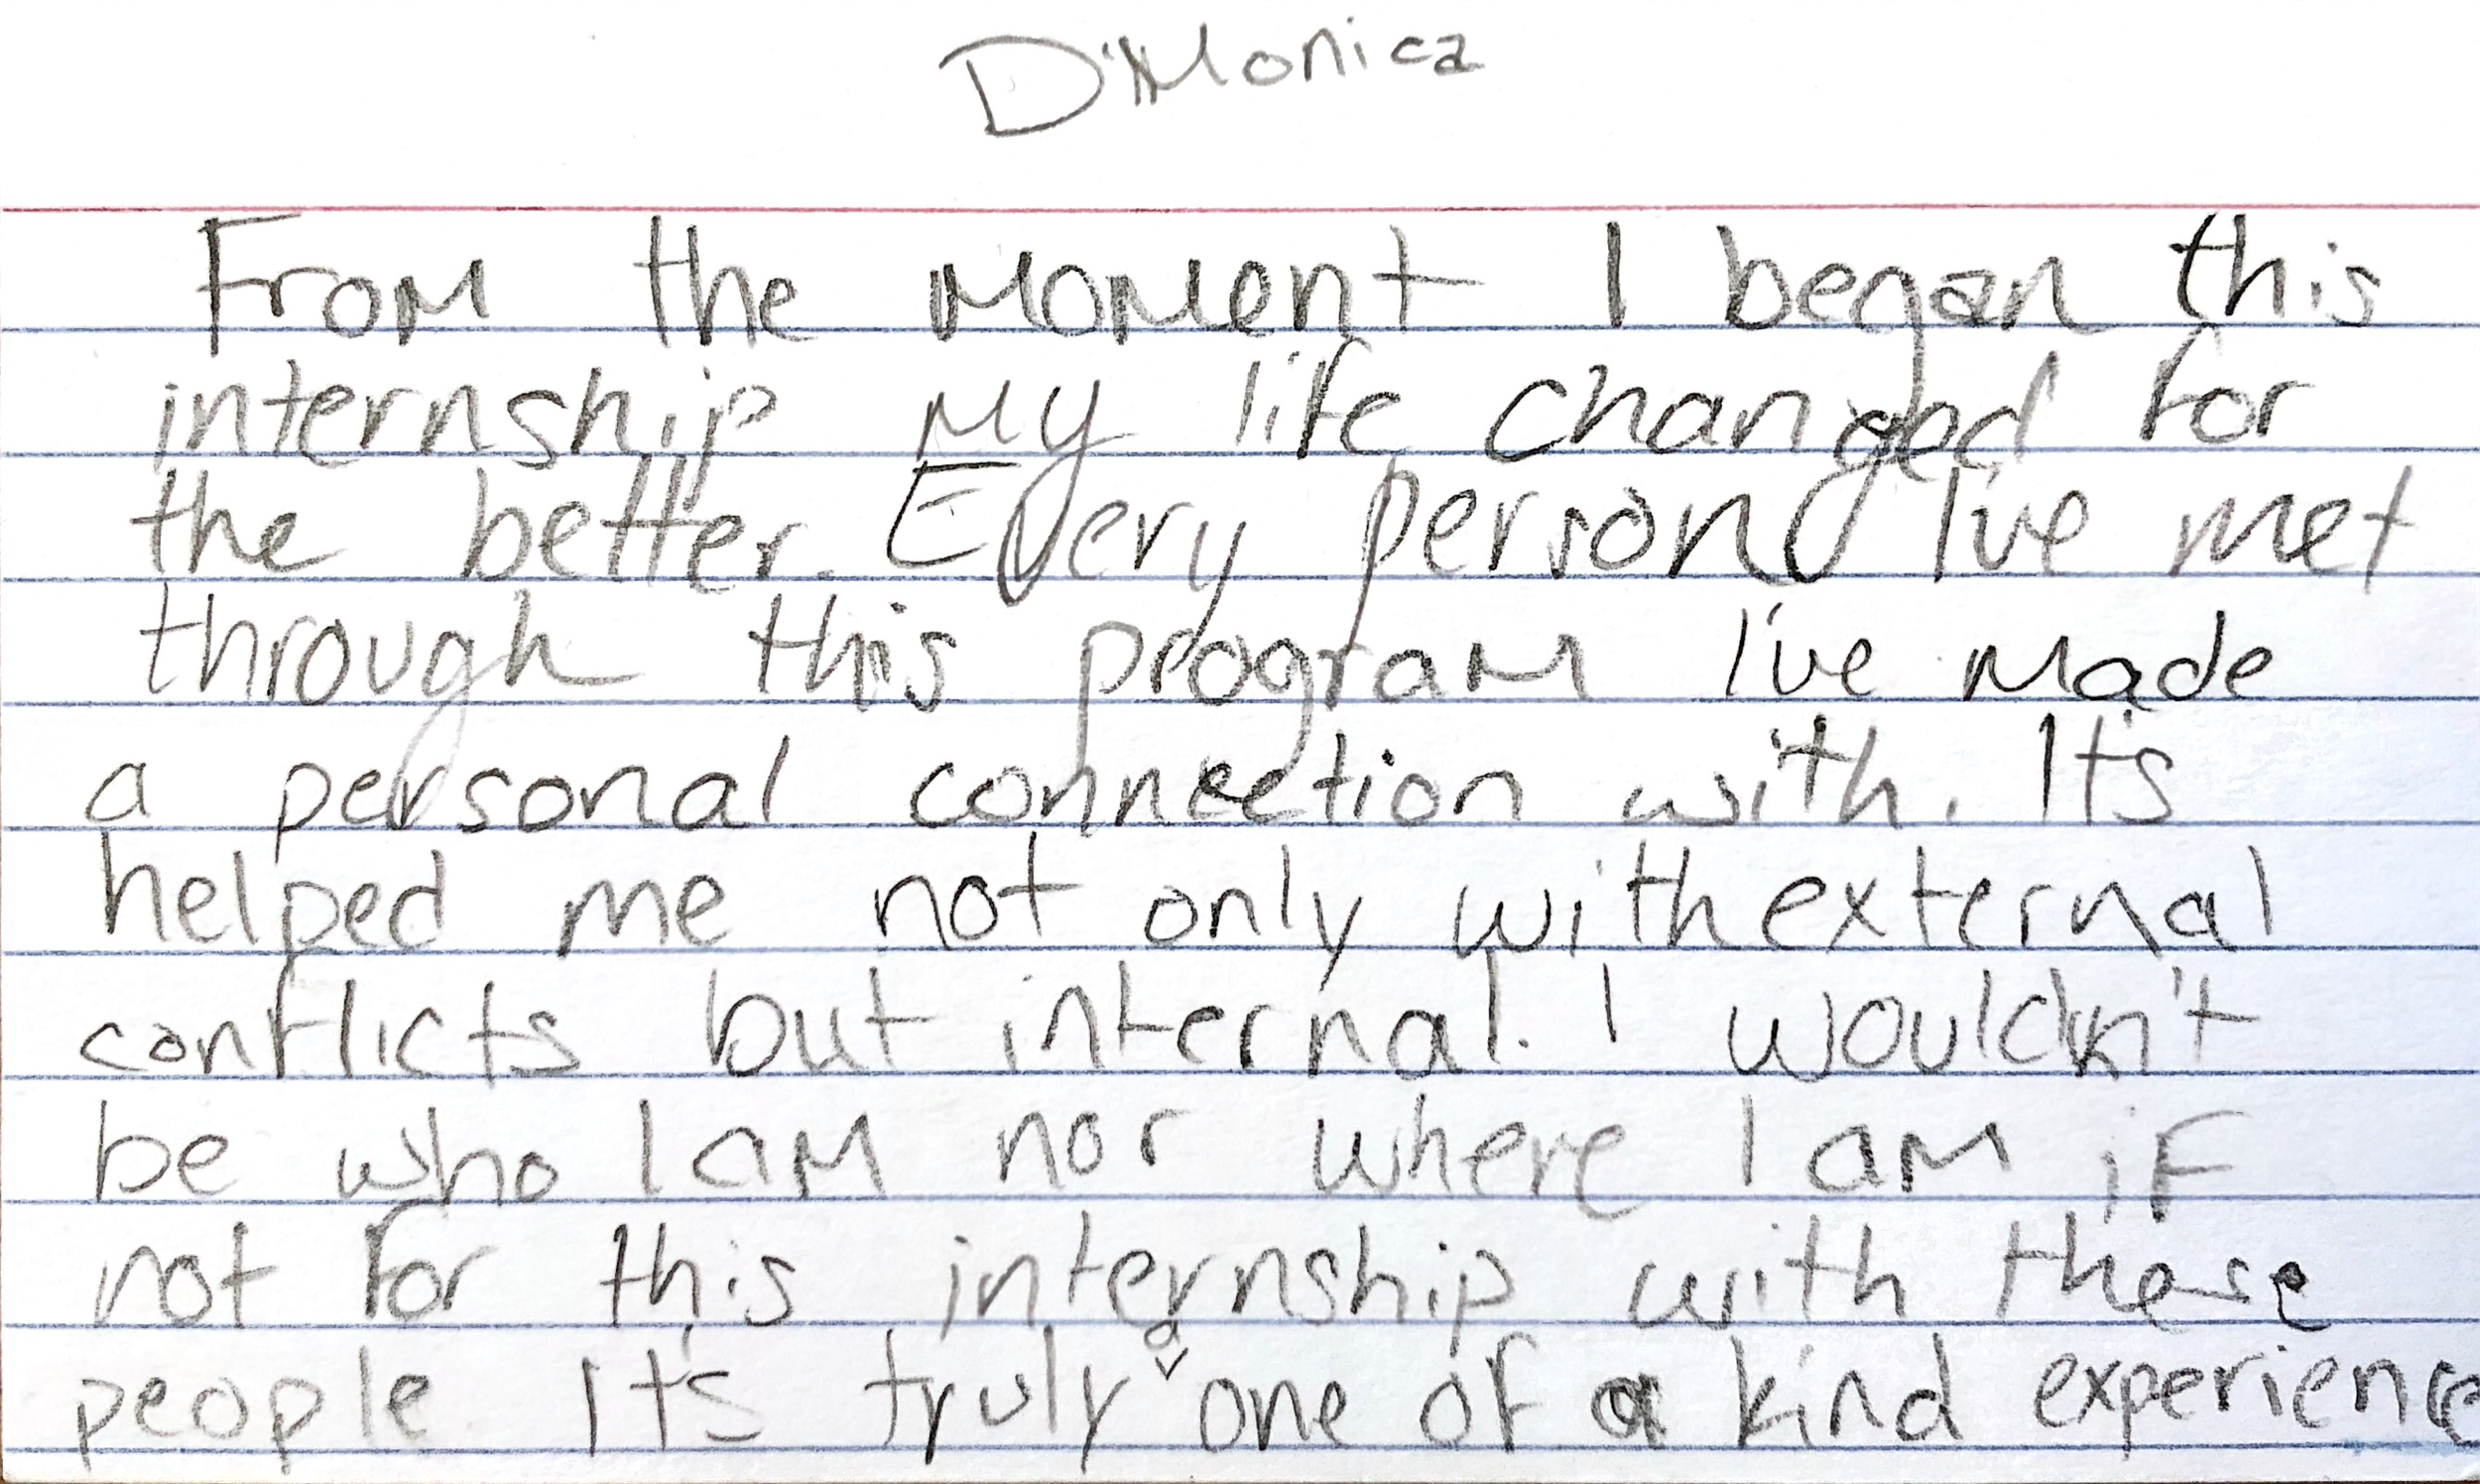 D'Monica
From the moment I began this
internship my life changed for
the better. Every person I've met
through this program I've made
a personal connection with. It's
helped me not only with external
conflicts but internal. I wouldn't
be who I am nor where I am if
not for this internship with these
people It's truly a one of a kind experience